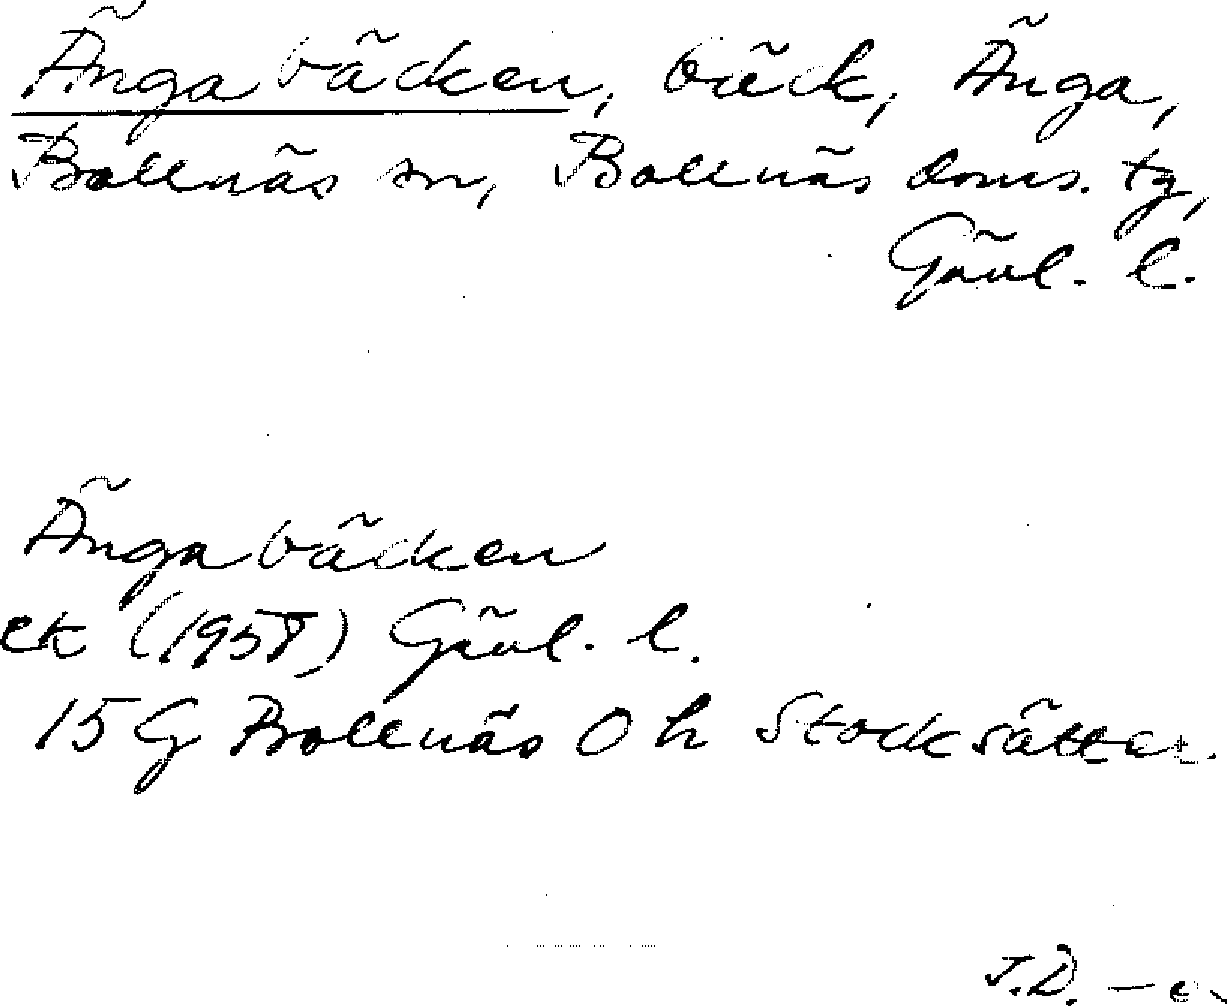 Ängabäcken, bäck, Änga,
Bollnäs sn, Bollnäs doms. tg,
Gävl. l.
Ängabäcken
ek (1958) Gävl. l.
15 G Bollnäs 0 h Stocksätter.
J.D. —